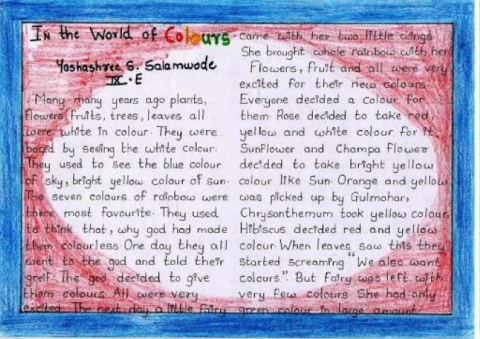 In the World of Colours.
Yashashree S. Salamwode
IX. E
Many many years ago plants,
flowers, fruits, trees, leaves all
were white in colour. They were
bored by seeing the white colour.
They used to see the blue colour
of sky, bright yellow colour of sun.
The seven colours of rainbow were
there most favourite. They used
to think that, why god had made
them colourless. One day they all
went to the god and told their
greif. The god decided to give
them colours. All were very
excited. The next day a little fairy
came with her two little wings
She brought whole rainbow with her
Flowers, fruit and all were very
excited for their new colours.
Everyone decided a colour for
them Rose decided to take red,
yellow and white colour for it.
SunFlower and Champa flower
decided to take bright yellow
colour like Sun. Orange and yellow
was picked up by Gulmohar,
Chrysonthemum took yellow colour,
Hibiscus decided red and yellow
colour. When leaves saw this they
started screaming "We also want
colours". But fairy was left with
very few colours She had only
green colour in large amount